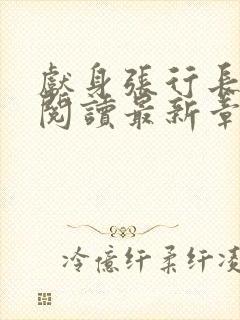 獻身張行長
閱讀最新章
冷億纤柔纤凌